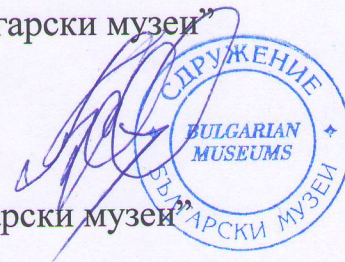 гарски музеи”
СДРУЖЕНИЕ
BULGARIAN
MUSEUMS
БЪЛГАРСКИ МУЗЕИ
арски музеи”